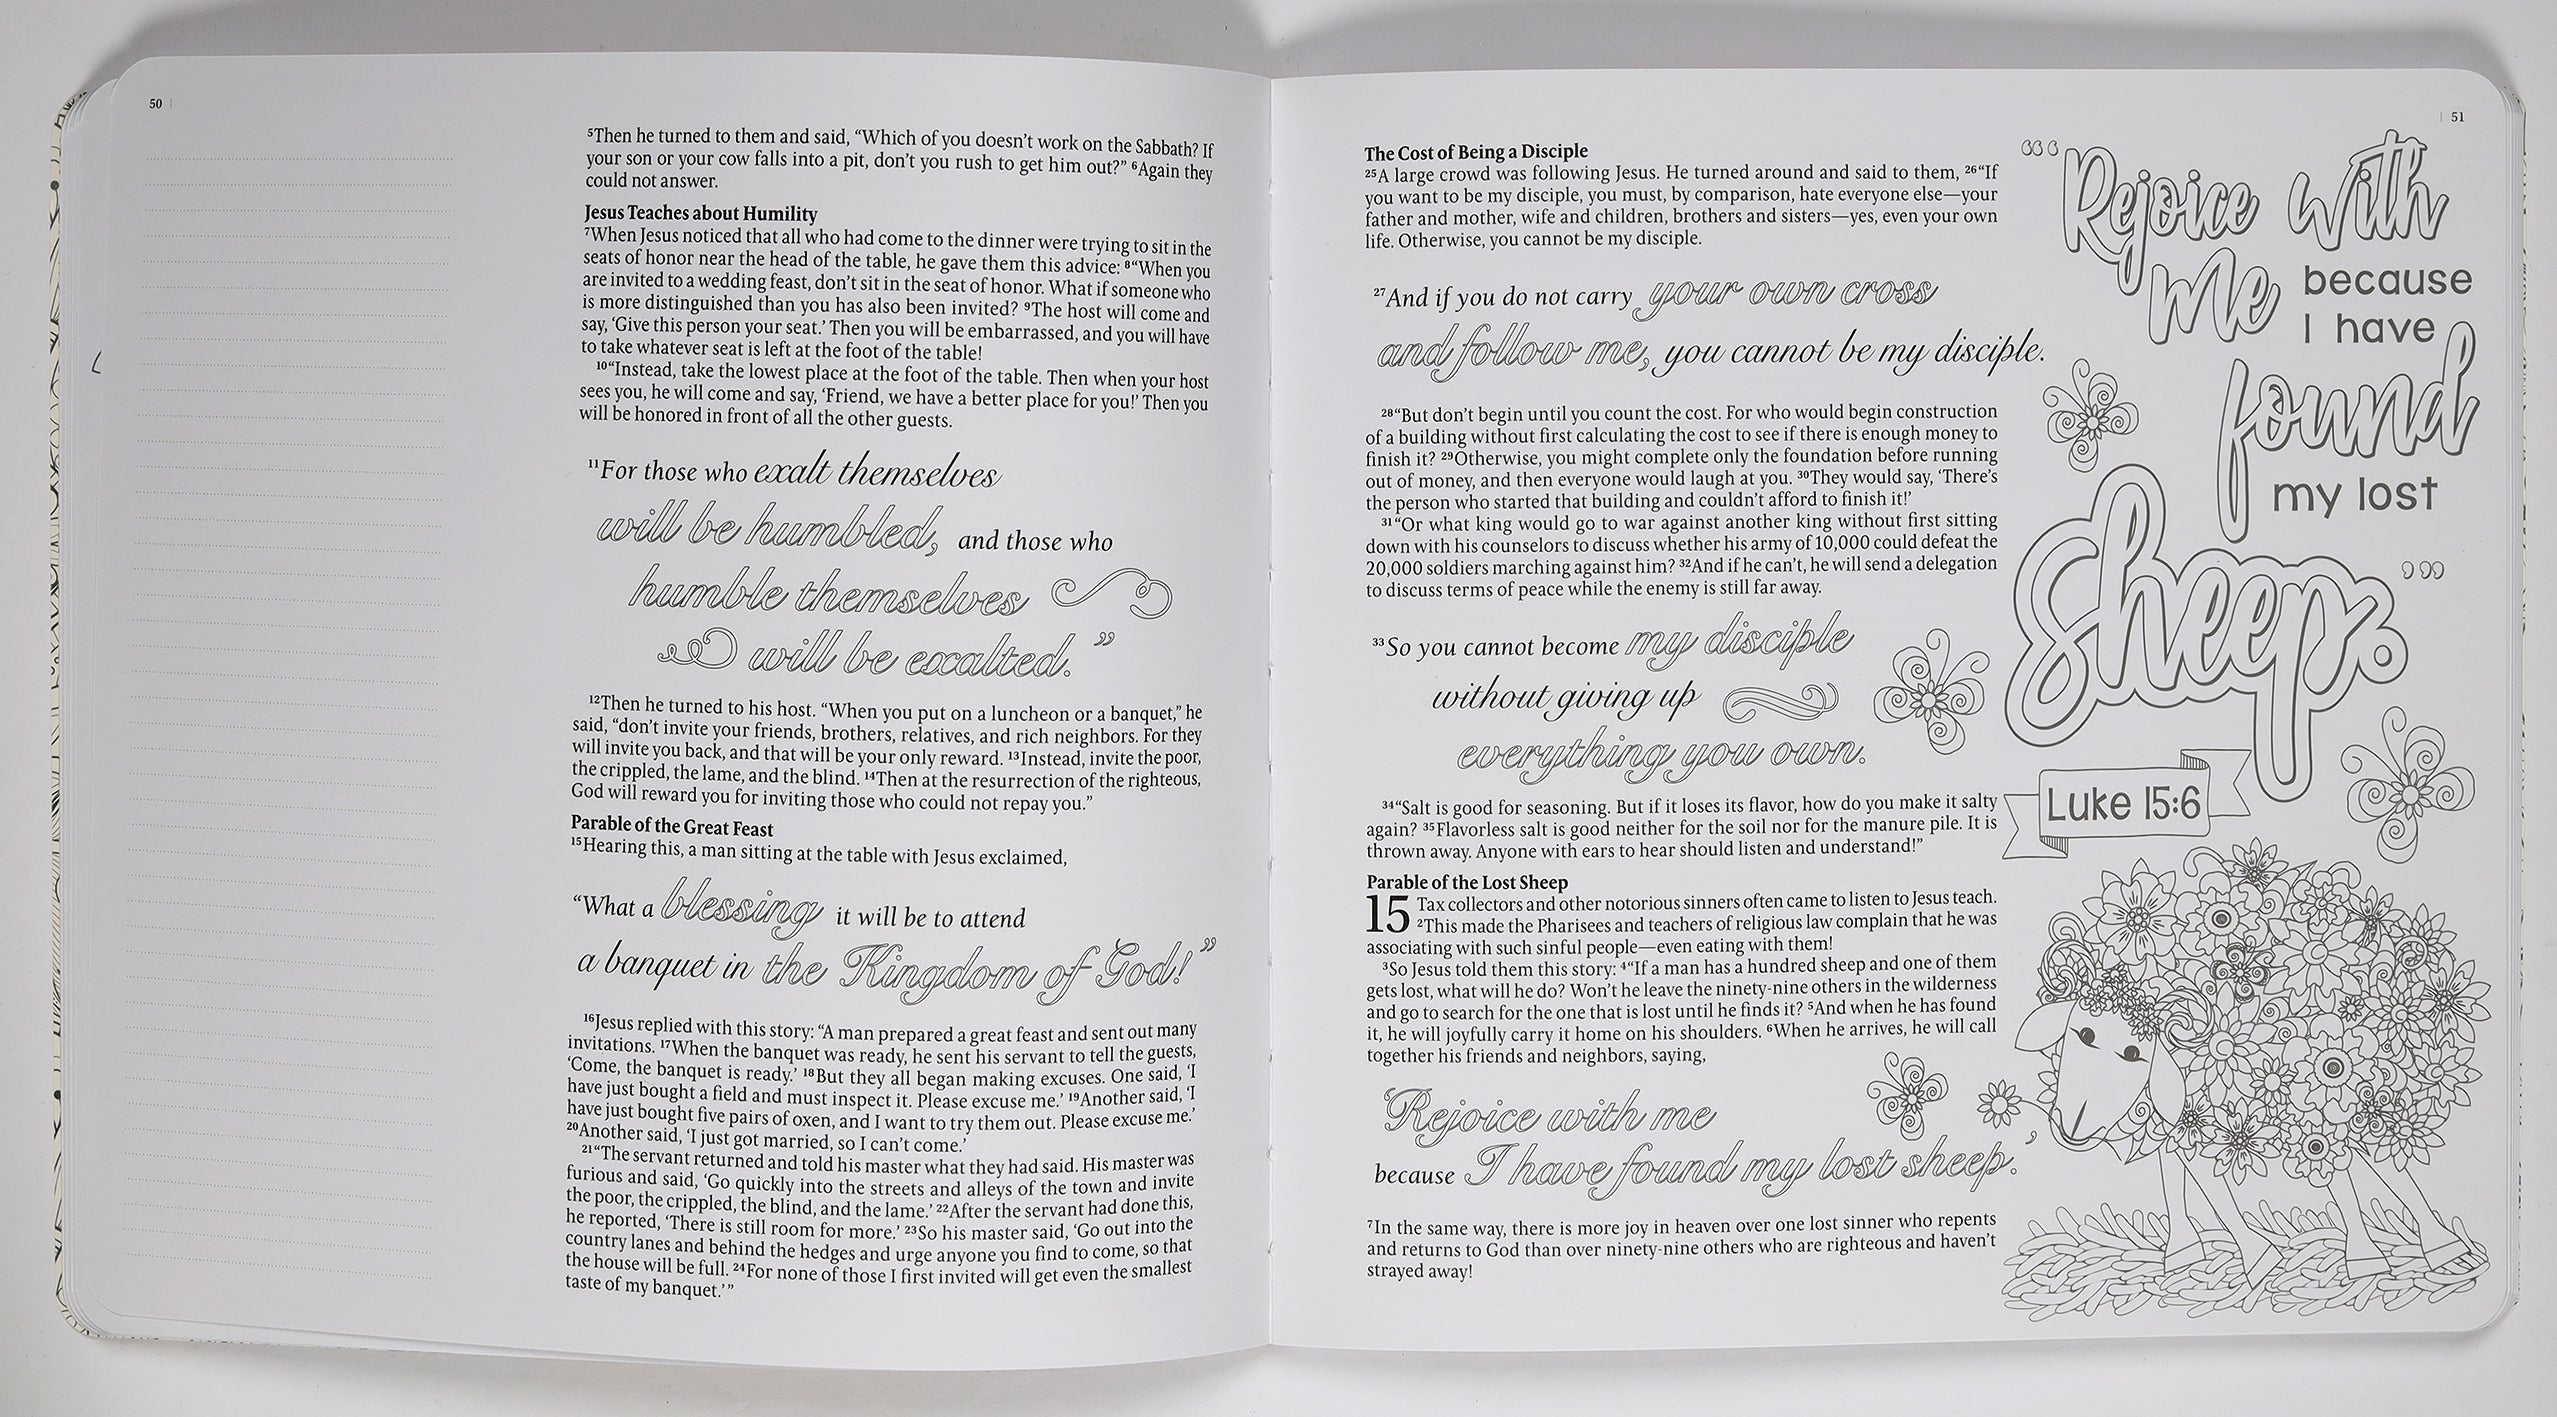 50
⁵Then he turned to them and said, “Which of you doesn’t work on the Sabbath? If
your son or your cow falls into a pit, don’t you rush to get him out?” ⁶Again they
could not answer.
Jesus Teaches about Humility
⁷When Jesus noticed that all who had come to the dinner were trying to sit in the
seats of honor near the head of the table, he gave them this advice: ⁸“When you
are invited to a wedding feast, don’t sit in the seat of honor. What if someone who
is more distinguished than you has also been invited? ⁹The host will come and
say, ‘Give this person your seat.’ Then you will be embarrassed, and you will have
to take whatever seat is left at the foot of the table!
¹⁰“Instead, take the lowest place at the foot of the table. Then when your host
sees you, he will come and say, ‘Friend, we have a better place for you!’ Then you
will be honored in front of all the other guests.
¹¹For those who exalt themselves
will be humbled, and those who
humble themselves
will be exalted.”
¹²Then he turned to his host. “When you put on a luncheon or a banquet,” he
said, “don’t invite your friends, brothers, relatives, and rich neighbors. For they
will invite you back, and that will be your only reward. ¹³Instead, invite the poor,
the crippled, the lame, and the blind. ¹⁴Then at the resurrection of the righteous,
God will reward you for inviting those who could not repay you.”
Parable of the Great Feast
¹⁵Hearing this, a man sitting at the table with Jesus exclaimed,
“What a blessing it will be to attend
a banquet in the Kingdom of God!”
¹⁶Jesus replied with this story: “A man prepared a great feast and sent out many
invitations. ¹⁷When the banquet was ready, he sent his servant to tell the guests,
‘Come, the banquet is ready.’ ¹⁸But they all began making excuses. One said, ‘I
have just bought a field and must inspect it. Please excuse me.’ ¹⁹Another said, ‘I
have just bought five pairs of oxen, and I want to try them out. Please excuse me.’
²⁰Another said, ‘I just got married, so I can’t come.’
²¹“The servant returned and told his master what they had said. His master was
furious and said, ‘Go quickly into the streets and alleys of the town and invite
the poor, the crippled, the blind, and the lame.’ ²²After the servant had done this,
he reported, ‘There is still room for more.’ ²³So his master said, ‘Go out into the
country lanes and behind the hedges and urge anyone you find to come, so that
the house will be full. ²⁴For none of those I first invited will get even the smallest
taste of my banquet.’”
51
The Cost of Being a Disciple
²⁵A large crowd was following Jesus. He turned around and said to them, ²⁶“If
you want to be my disciple, you must, by comparison, hate everyone else—your
father and mother, wife and children, brothers and sisters—yes, even your own
life. Otherwise, you cannot be my disciple.
²⁷And if you do not carry your own cross
and follow me, you cannot be my disciple.
²⁸“But don’t begin until you count the cost. For who would begin construction
of a building without first calculating the cost to see if there is enough money to
finish it? ²⁹Otherwise, you might complete only the foundation before running
out of money, and then everyone would laugh at you. ³⁰They would say, ‘There’s
the person who started that building and couldn’t afford to finish it!’
³¹“Or what king would go to war against another king without first sitting
down with his counselors to discuss whether his army of 10,000 could defeat the
20,000 soldiers marching against him? ³²And if he can’t, he will send a delegation
to discuss terms of peace while the enemy is still far away.
³³So you cannot become my disciple
without giving up
everything you own.
³⁴“Salt is good for seasoning. But if it loses its flavor, how do you make it salty
again? ³⁵Flavorless salt is good neither for the soil nor for the manure pile. It is
thrown away. Anyone with ears to hear should listen and understand!”
Parable of the Lost Sheep
15 Tax collectors and other notorious sinners often came to listen to Jesus teach.
²This made the Pharisees and teachers of religious law complain that he was
associating with such sinful people—even eating with them!
³So Jesus told them this story: ⁴“If a man has a hundred sheep and one of them
gets lost, what will he do? Won’t he leave the ninety-nine others in the wilderness
and go to search for the one that is lost until he finds it? ⁵And when he has found
it, he will joyfully carry it home on his shoulders. ⁶When he arrives, he will call
together his friends and neighbors, saying,
‘Rejoice with me
because I have found my lost sheep.’
⁷In the same way, there is more joy in heaven over one lost sinner who repents
and returns to God than over ninety-nine others who are righteous and haven’t
strayed away!
“Rejoice with
me because
I have
found
my lost
sheep.”
Luke 15:6